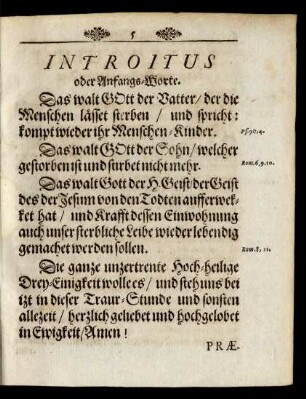 5
INTROITUS
oder Anfangs-Worte.
Das walt GOtt der Vatter / der die
Menschen lässet sterben / und spricht:
kompt wieder ihr Menschen-Kinder.
Ps. 90. 4.
Das walt GOtt der Sohn / welcher
gestorben ist und stirbet nicht mehr.
Rom. 6, 9. 10.
Das walt Gott der H. Geist der Geist
des der Jesum von den Todten aufferwek-
ket hat / und Krafft dessen Einwohnung
auch unser sterbliche Leibe wieder lebendig
gemachet werden sollen.
Rom. 8, 11.
Die ganze unzertrente Hoch-heilige
Drey-Einigkeit woll es / und steh uns bei
izt in dieser Traur-Stunde und sonsten
allezeit / herzlich geliebet und hochgelobet
in Ewigkeit / Amen!
PRÆ-